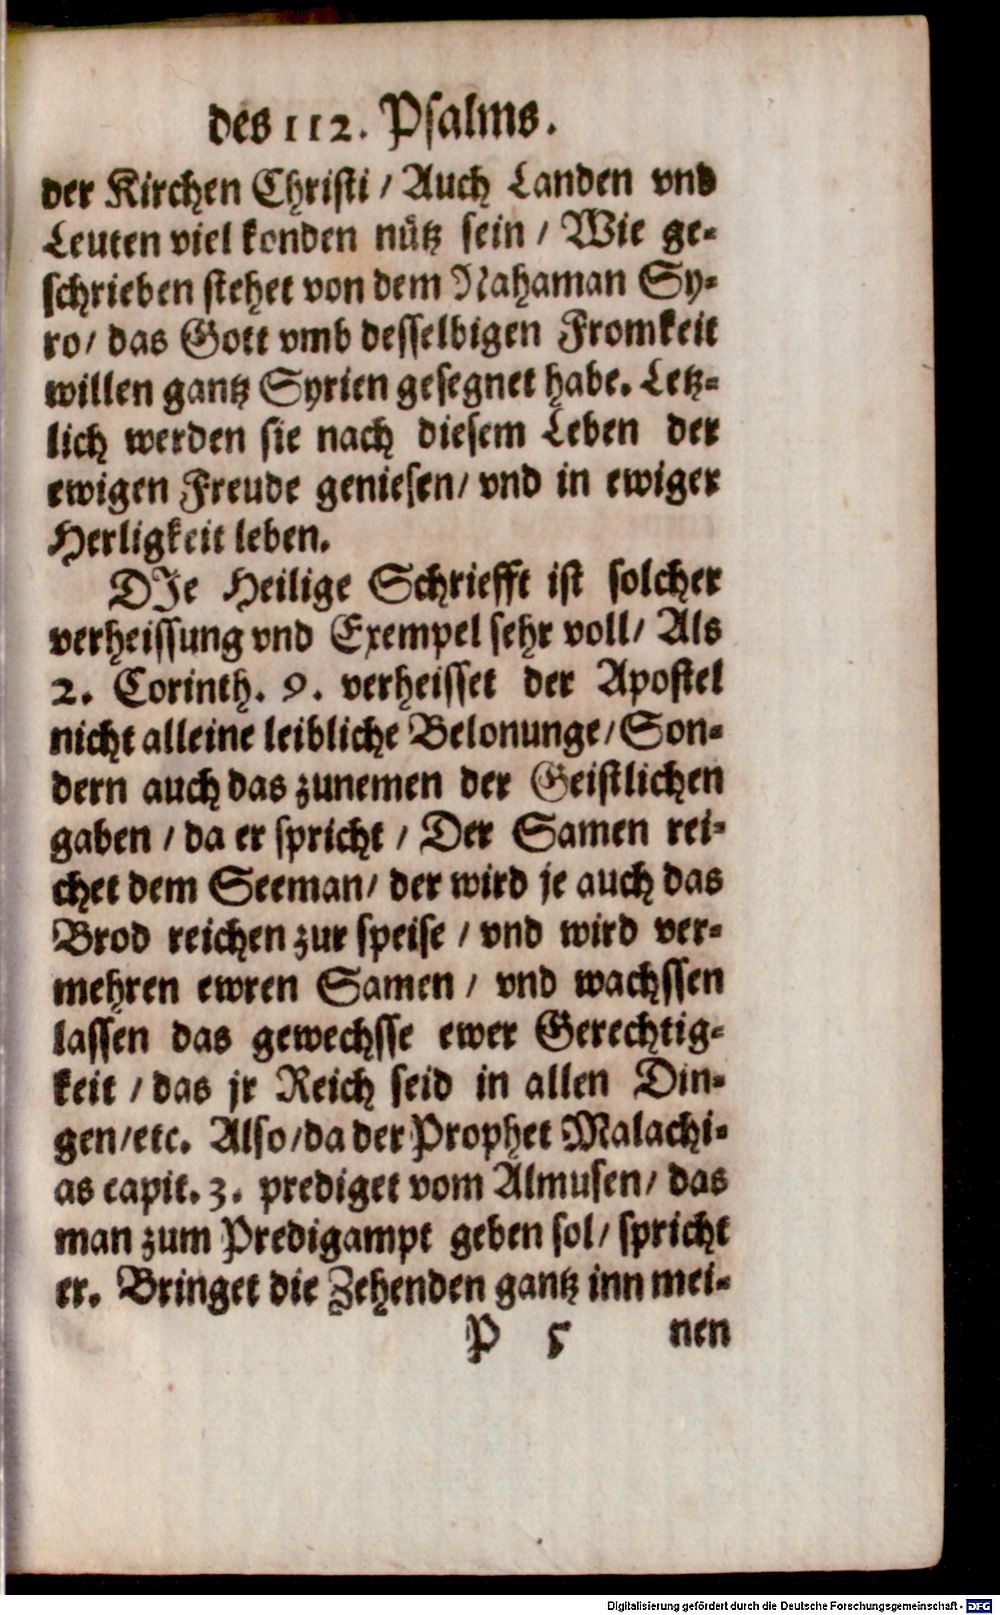 des 112. Psalms.
der Kirchen Christi / Auch Landen vnd
Leuten viel konden nütz sein / Wie ge-
schrieben stehet von dem Nahaman Sy-
ro / das Gott vmb desselbigen Fromkeit
willen gantz Syrien gesegnet habe. Letz-
lich werden sie nach diesem Leben der
ewigen Freude geniesen / vnd in ewiger
Herligkeit leben.
DJe Heilige Schriefft ist solcher
verheissung vnd Exempel sehr voll / Als
2. Corinth. 9. verheisset der Apostel
nicht alleine leibliche Belonunge / Son-
dern auch das zunemen der Geistlichen
gaben / da er spricht / Der Samen rei-
chet dem Seeman / der wird je auch das
Brod reichen zur speise / vnd wird ver-
mehren ewren Samen / vnd wachssen
lassen das gewechsse ewer Gerechtig-
keit / das jr Reich seid in allen Din-
gen / etc. Also / da der Prophet Malachi-
as capit. 3. prediget vom Almusen / das
man zum Predigampt geben sol / spricht
er. Bringet die Zehenden gantz inn mei-
P 5 nen
Digitalisierung gefördert durch die Deutsche Forschungsgemeinschaft - DFG